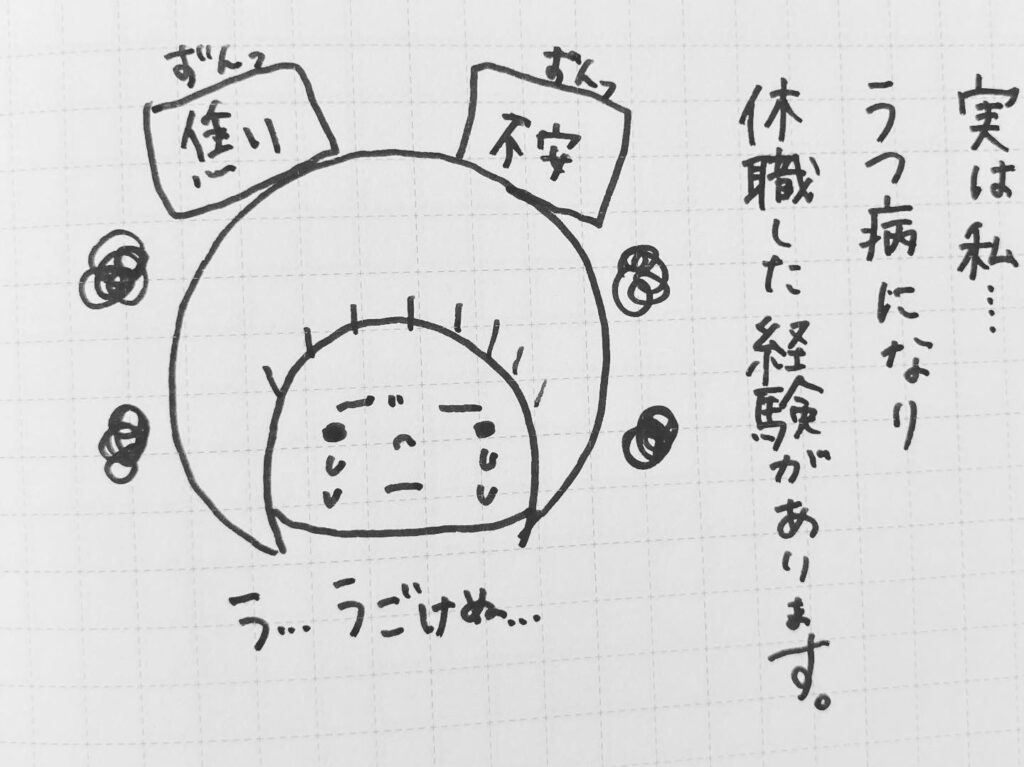 実は私…
うつ病になり
休職した経験があります。
ずんっ
不安
ずんっ
焦り
う… うごけぬ…